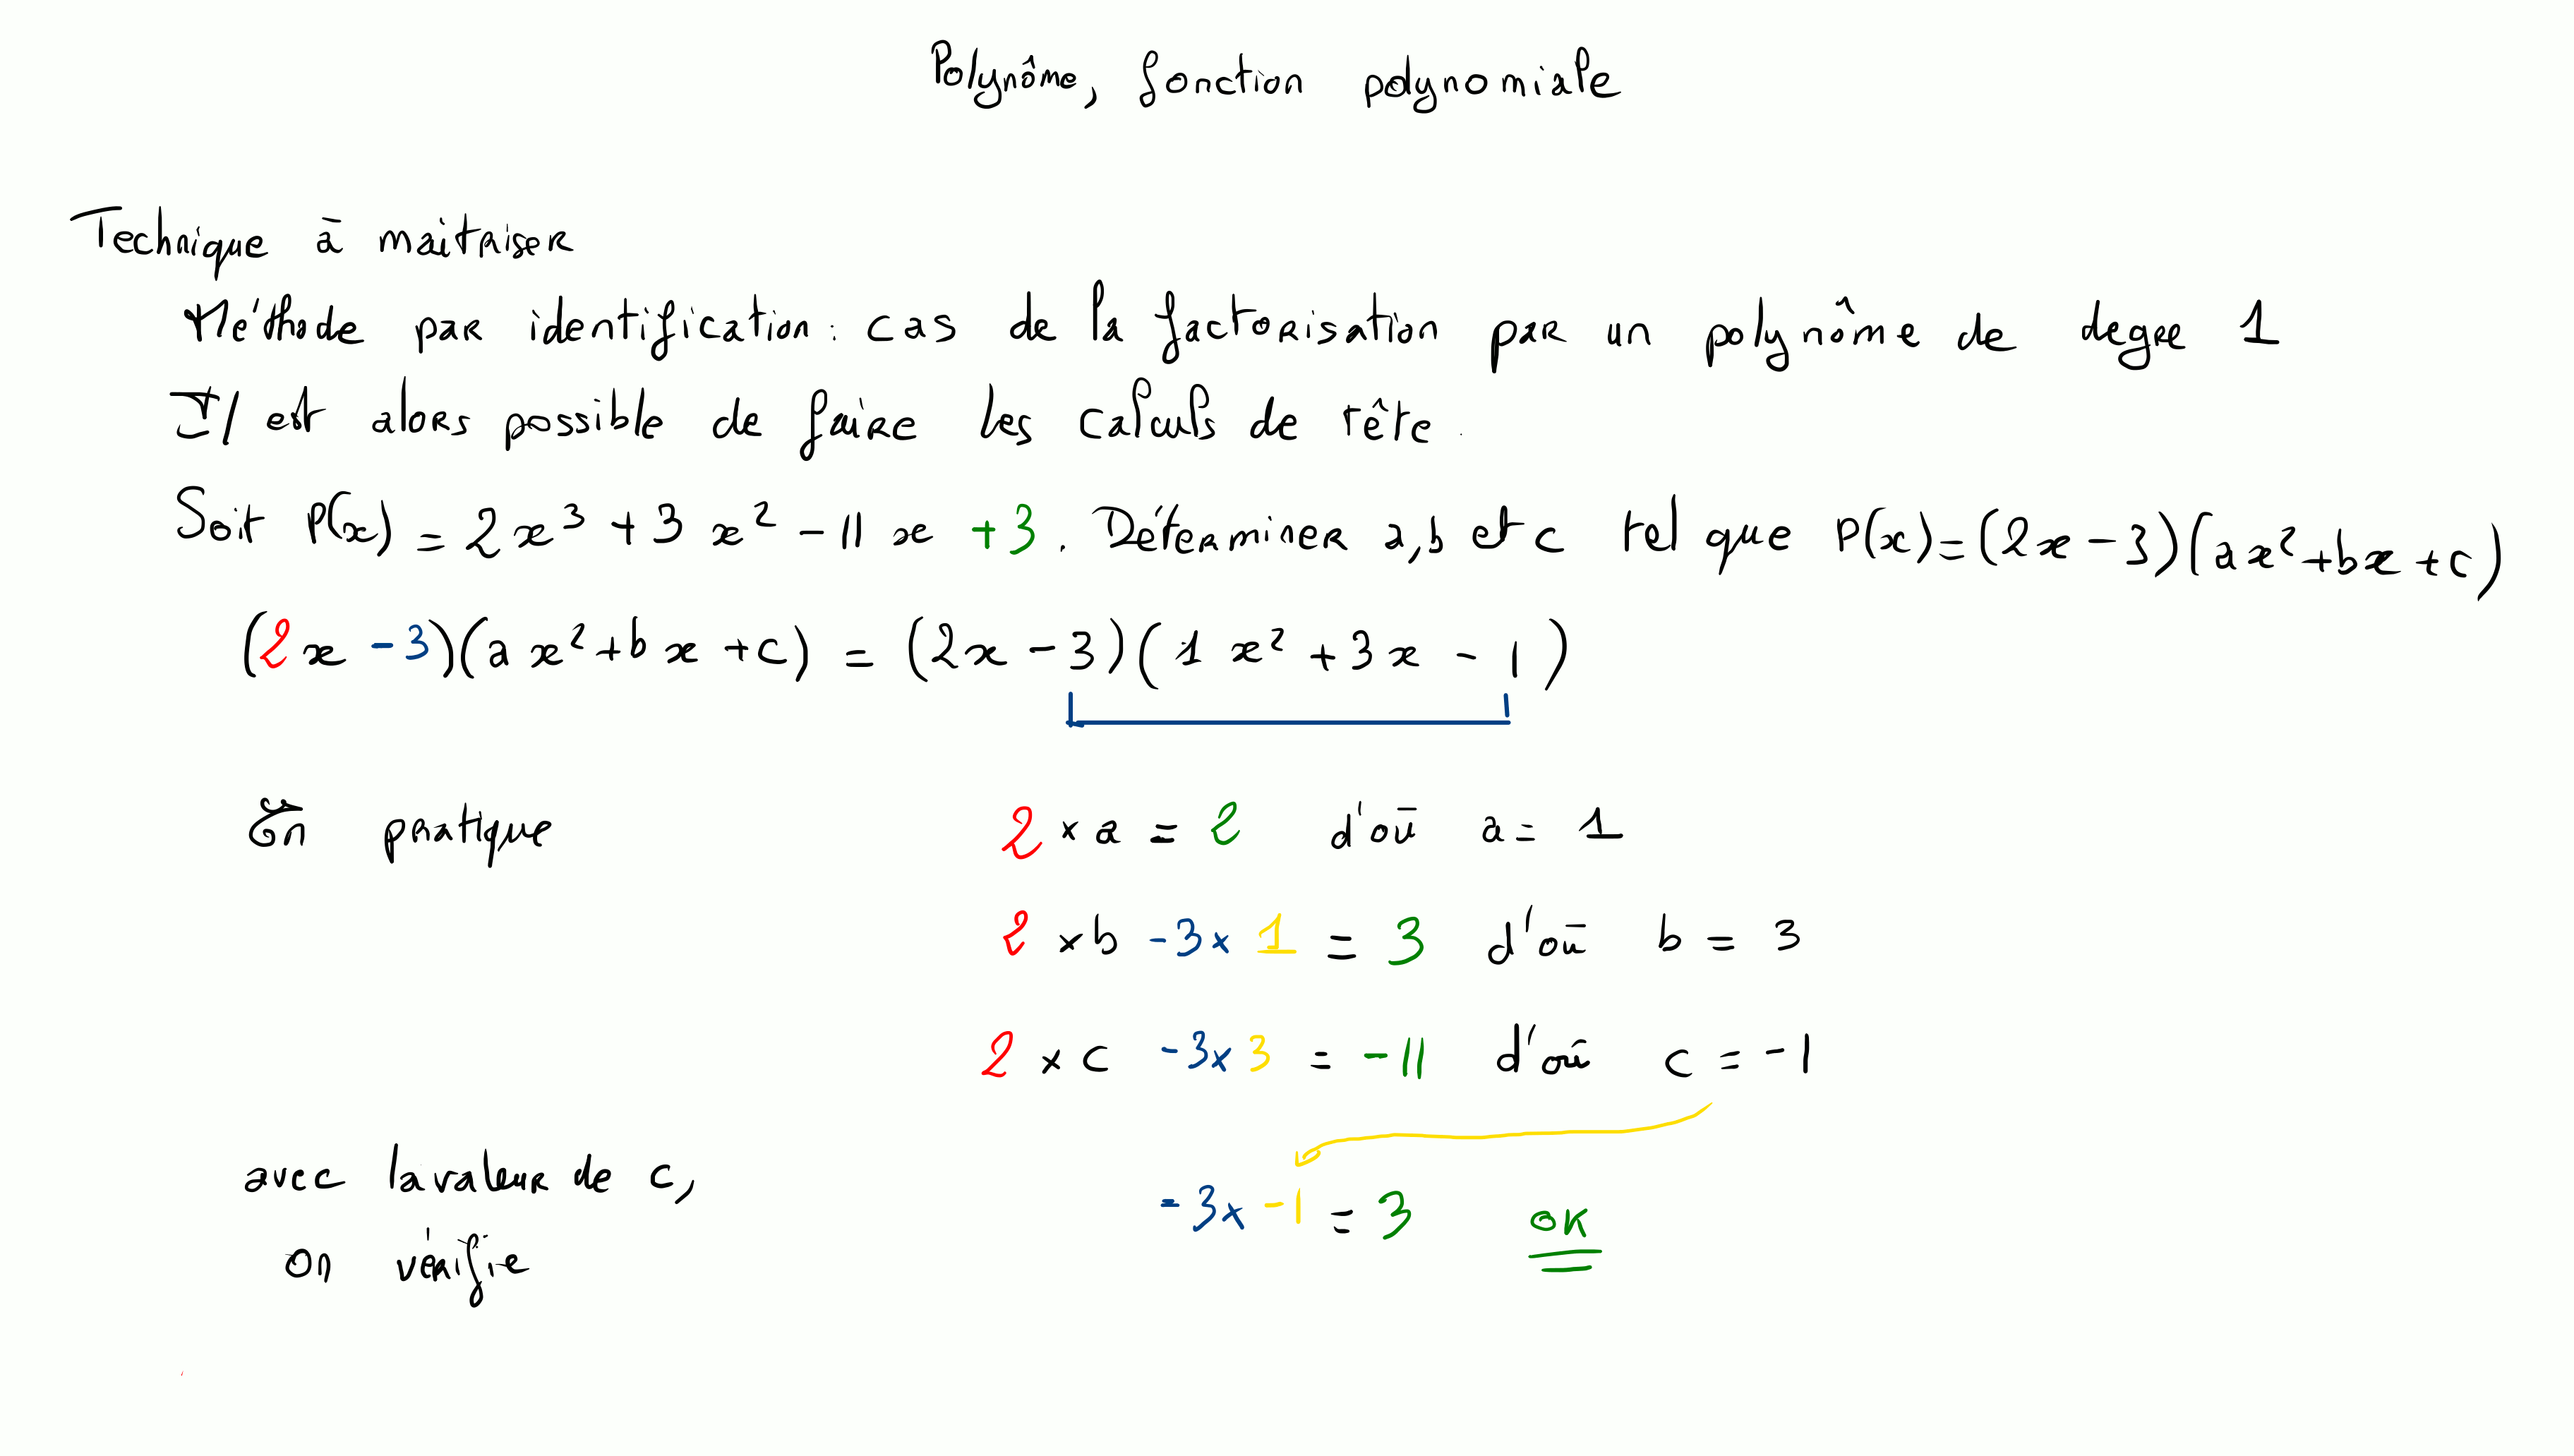 Polynôme, fonction polynomiale
Technique à maitriser
Méthode par identification : cas de la factorisation par un polynôme de degre 1
Il est alors possible de faire les calculs de tête.
Soit P(x) = 2x³ + 3x² - 11x + 3. Déterminer a, b et c tel que P(x) = (2x - 3)(ax² + bx + c)
(2x - 3)(ax² + bx + c) = (2x - 3)(1x² + 3x - 1)
En pratique 2 × a = 2 d'où a = 1
2 × b - 3 × 1 = 3 d'où b = 3
2 × c - 3 × 3 = -11 d'où c = -1
avec la valeur de c,
-3 × -1 = 3 OK
on vérifie